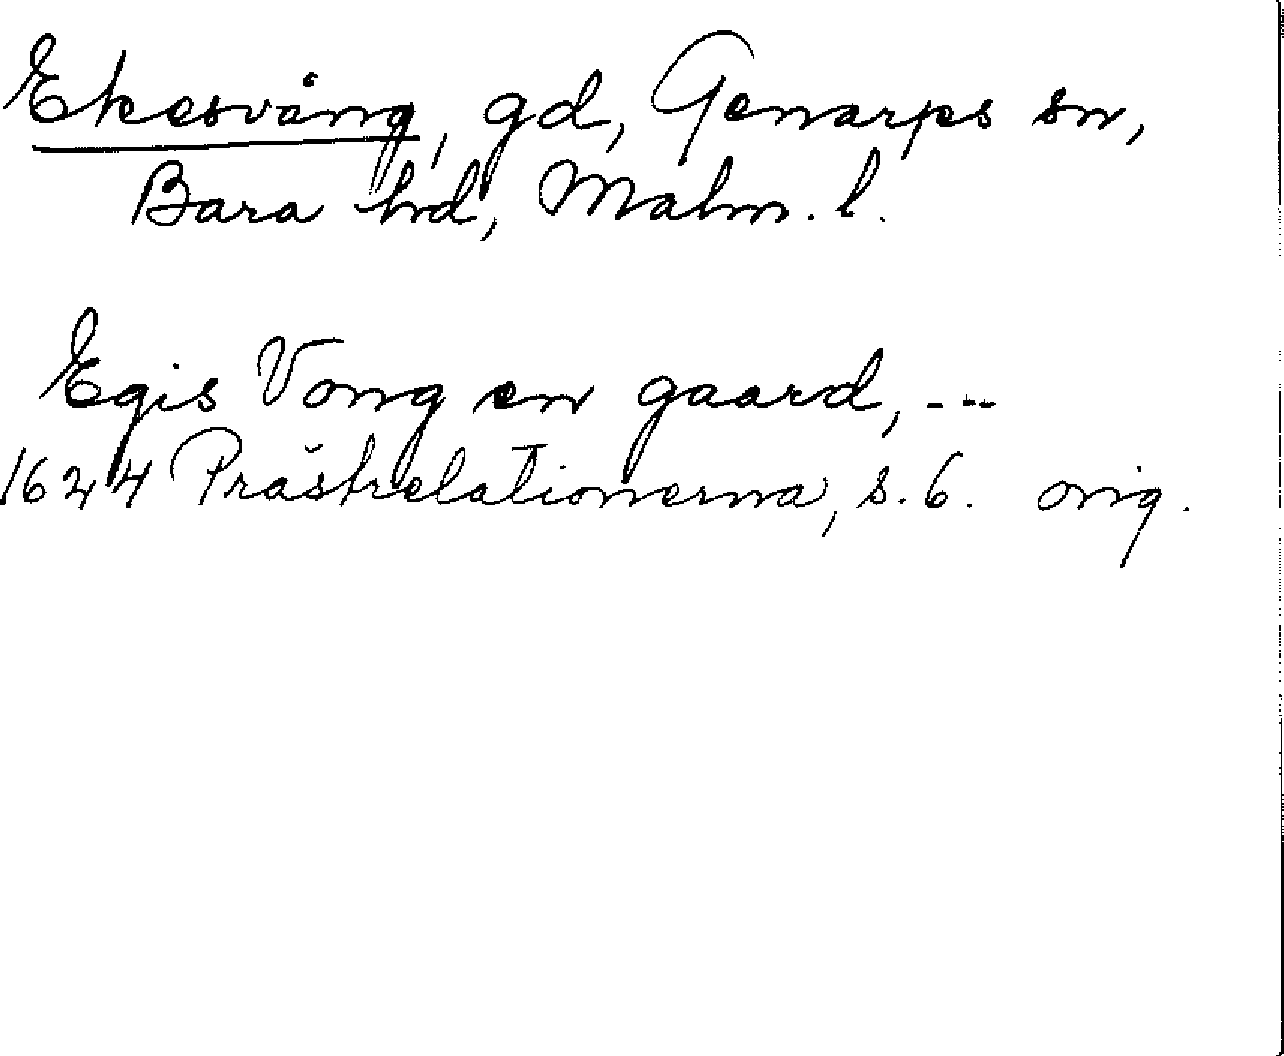 Ekesvång, gd, Genarps sn,
Bara hd, Malm. l.
Egis Vong en gaard, ---
1624 Prästrelationerna, s. 6. orig.